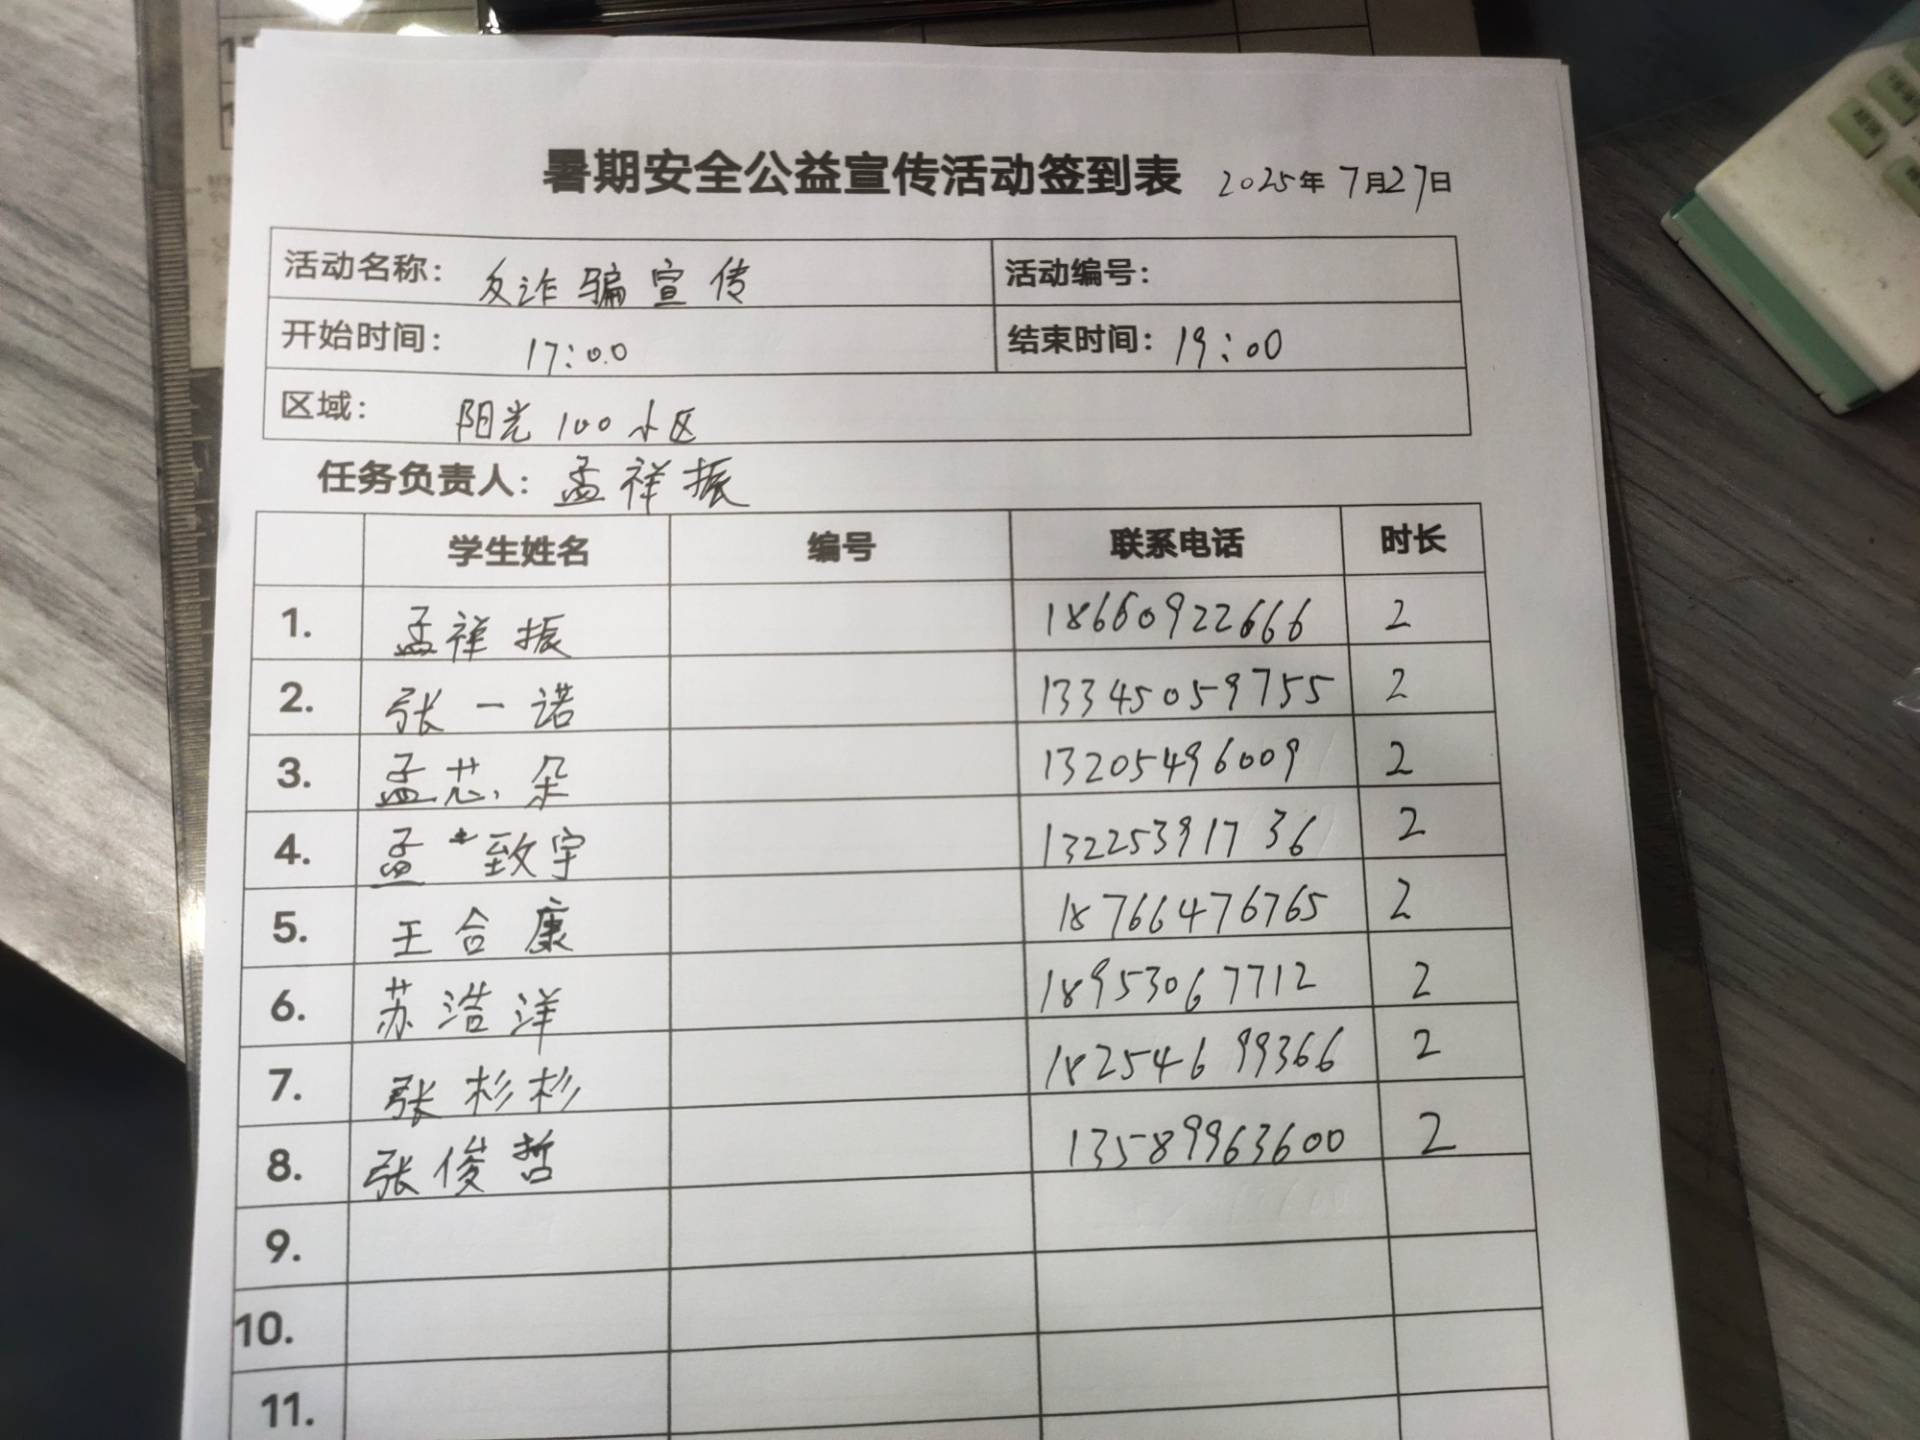 暑期安全公益宣传活动签到表 2025年 7月27日
活动名称： 反诈骗宣传 活动编号：
开始时间： 17:00 结束时间： 19:00
区域： 阳光100小区
任务负责人： 孟祥振
学生姓名 编号 联系电话 时长
1. 孟祥振 18660922666 2
2. 张一诺 13345059755 2
3. 孟芯朵 13205496009 2
4. 孟致宇 13225391736 2
5. 王合康 18766476765 2
6. 苏浩洋 18953067712 2
7. 张杉杉 18254699366 2
8. 张俊哲 13589963600 2
9.
10.
11.